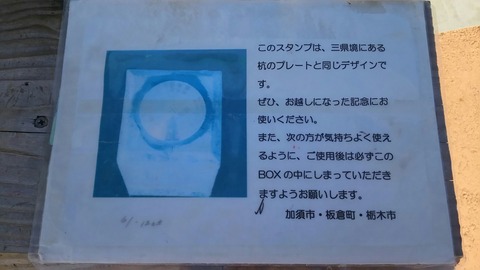 このスタンプは、三県境にある
杭のプレートと同じデザインで
す。
ぜひ、お越しになった記念にお
使いください。
また、次の方が気持ちよく使え
るように、ご使用後は必ずこの
BOXの中にしまっていただき
ますようお願いします。
加須市・板倉町・栃木市